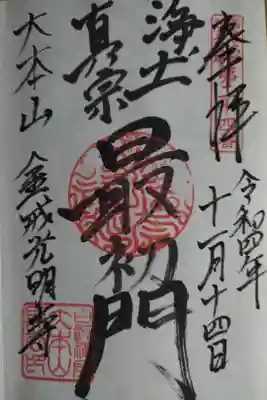 奉拝
令和四年
十一月十四日
浄土
真宗
最初門
大本山
金戒光明寺